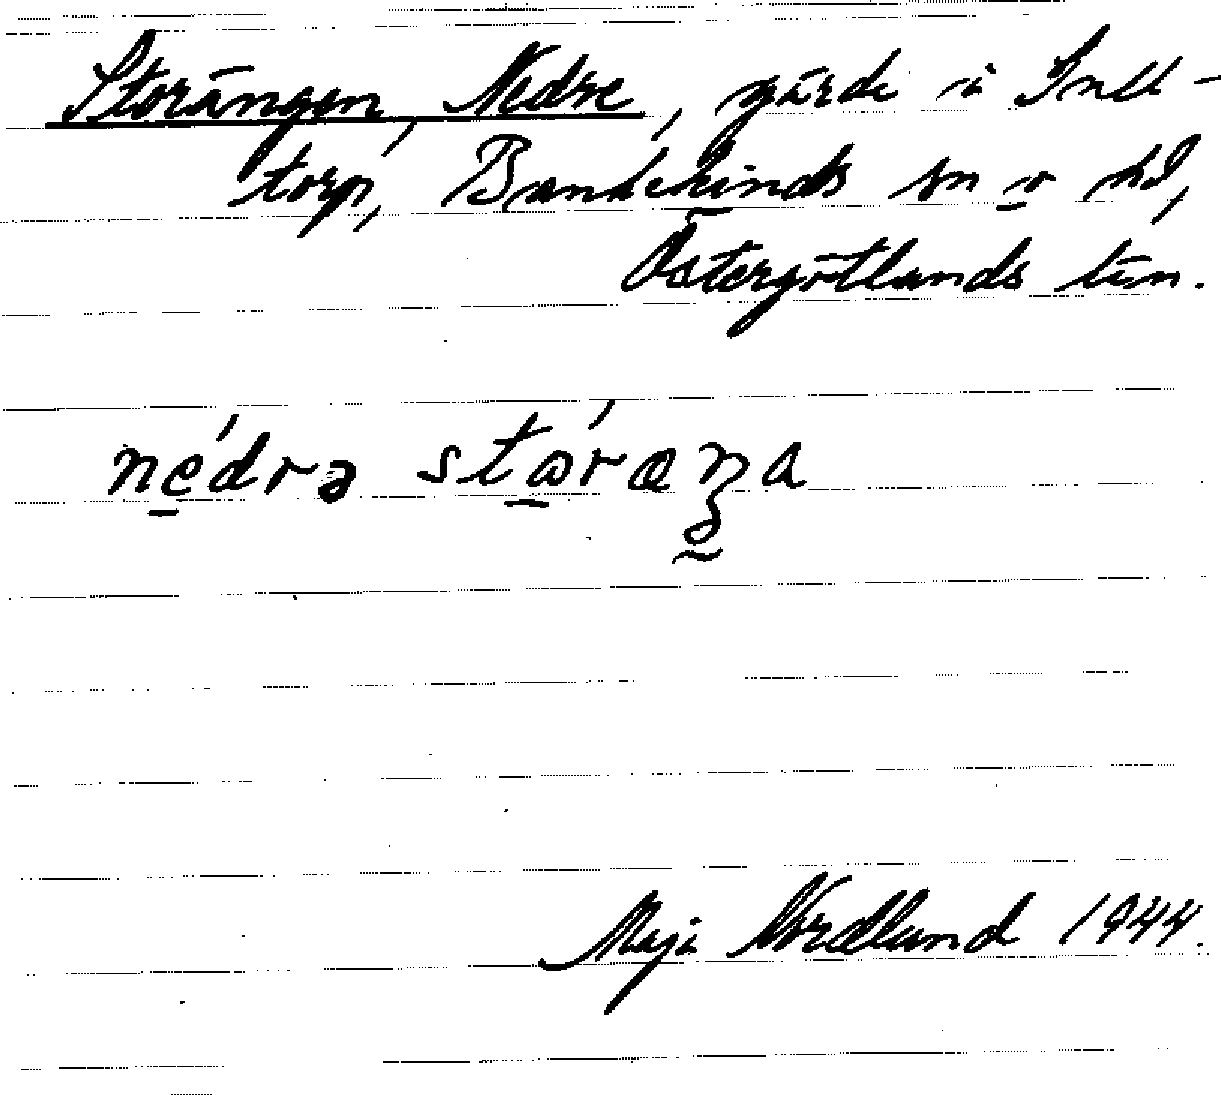 Storängen, Nedre, gärde i Snell-
torp, Bankekinds sn o hd,
Östergötlands län.
nedrə storæŋa
Maja Nordlund 1944.